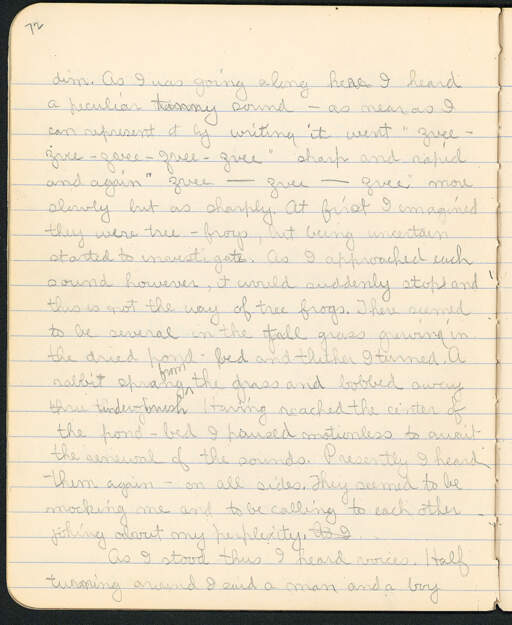 72
dim. As I was going along here I heard
a peculiar tinny sound – as near as I
can represent it by writing it went "zvee -
zvee - zvee - zvee - zvee" sharp and rapid
and again "zvee — zvee — zvee" more
slowly but as sharply. At first I imagined
they were tree - frogs, but being uncertain
started to investigate. As I approached each
sound however, it would suddenly stop and
this is not the way of tree frogs. There seemed
to be several in the tall grass growing in
the dried pond - bed and thither I turned. A
rabbit sprang from the grass and bobbed away
thru underbrush Having reached the center of
the pond - bed I paused motionless to await
the renewal of the sounds. Presently I heard
them again – on all sides. They seemed to be
mocking me and to be calling to each other
joking about my perplexity. As I
As I stood thus I heard voices. Half
turning around I said a man and a boy